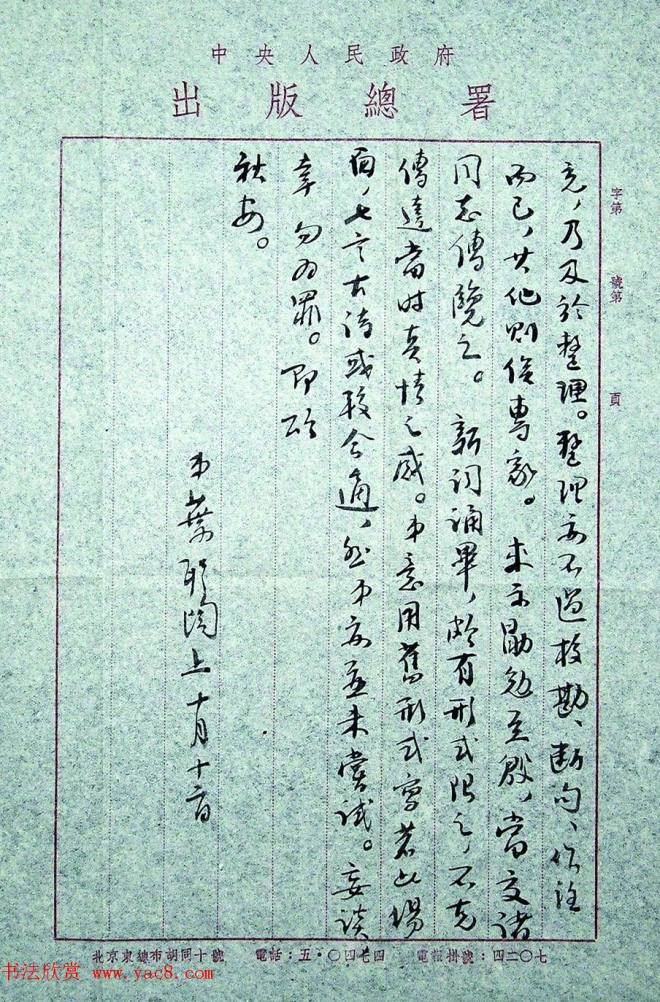 中央人民政府
出版總署
字第 號第 頁
竟,乃及於整理。整理亦不過校勘、斷句、作注
而已,其他則俟專家。來示勖勉至殷,當交諸
同志傳覽之。新詞誦畢,頗有形式限之,不克
傳達當時真情之感。弟意用舊形式寫若此場
面,七言古詩或較合適,然弟亦並未嘗試。妄談
幸勿為罪。即頌
秋安。
弟葉聖陶上十月十二日
北京東總布胡同十號 電話:五·〇四七四 電報掛號:四二〇七
书法欣赏 www.yac8.com